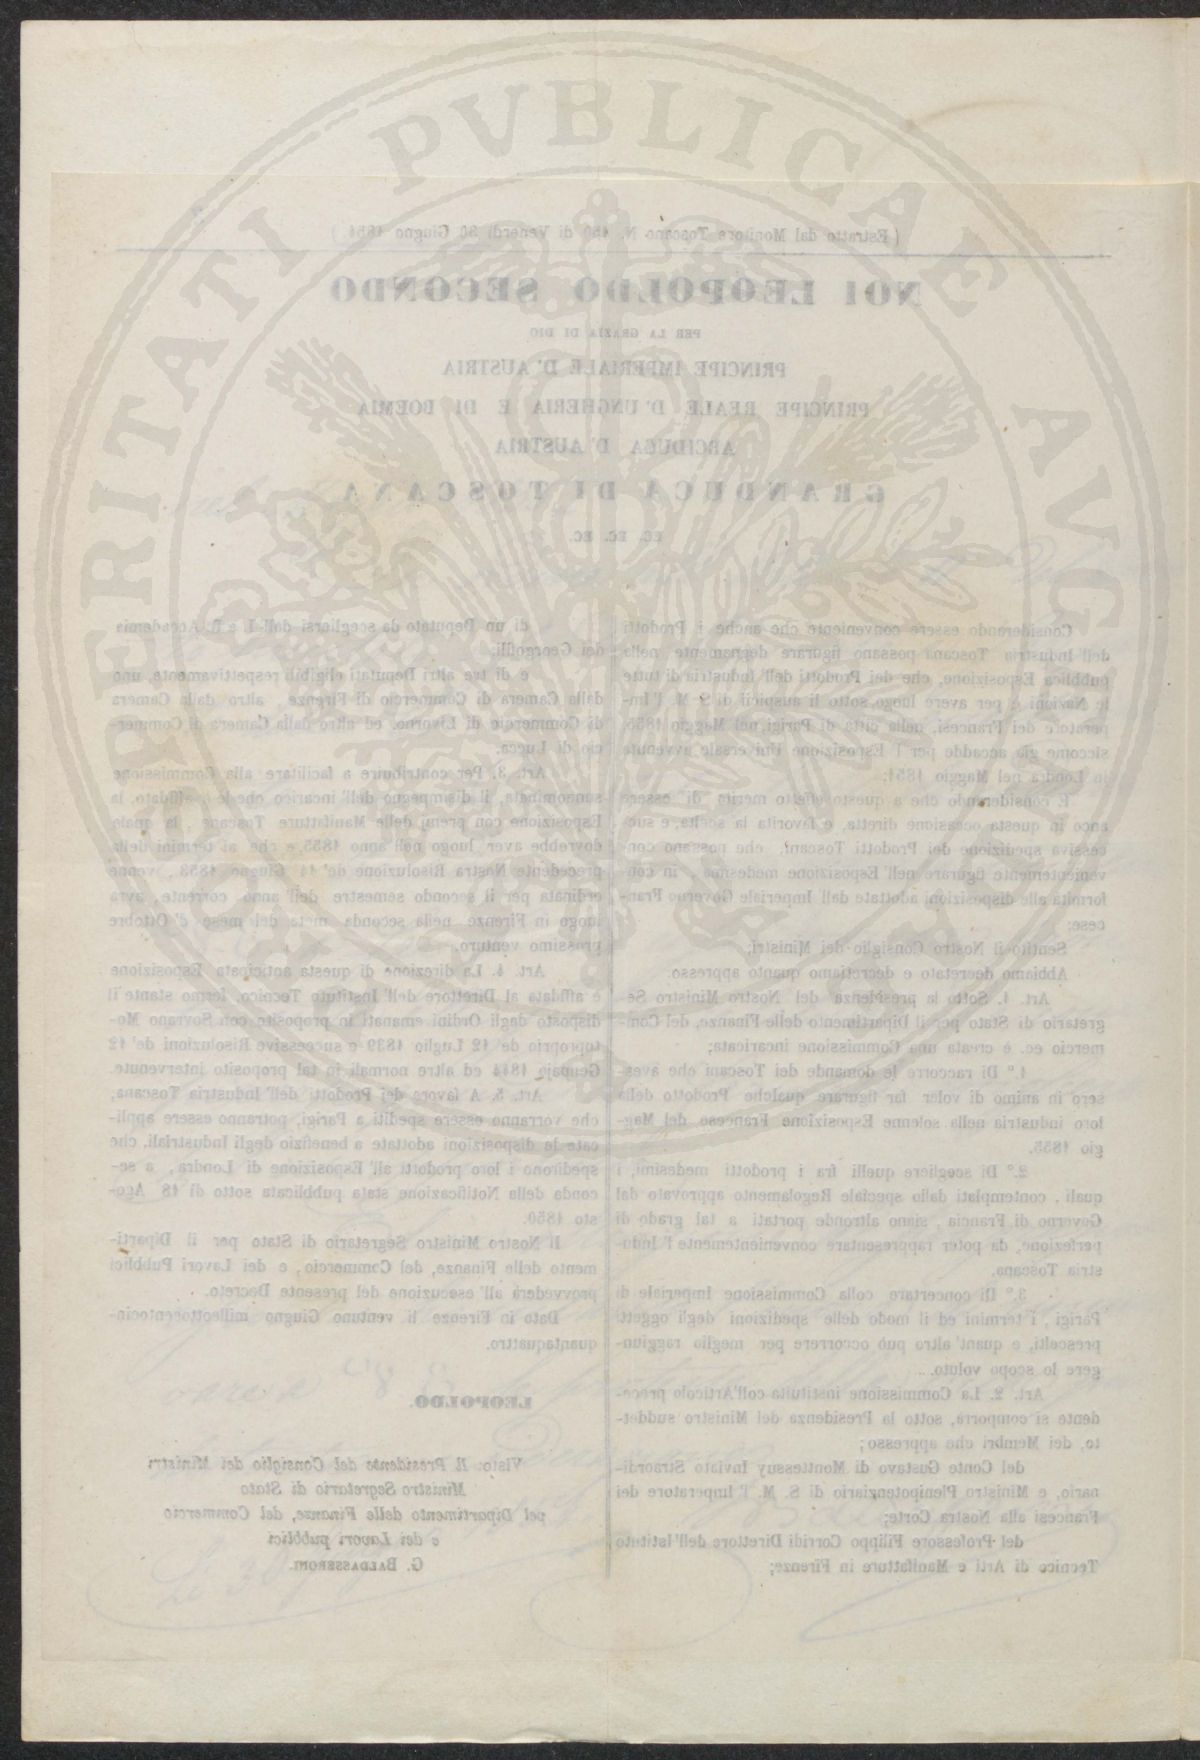 PROSPERITATI PVBLICAE AVGENDAE
( Estratto dal Monitore Toscano N. 150 di Venerdì 30 Giugno 1854 )
NOI LEOPOLDO SECONDO
PER LA GRAZIA DI DIO
PRINCIPE IMPERIALE D'AUSTRIA
PRINCIPE REALE D'UNGHERIA E DI BOEMIA
ARCIDUCA D'AUSTRIA
GRANDUCA DI TOSCANA
EC. EC. EC.
Considerando essere conveniente che anche i Prodotti
dell'Industria Toscana possano figurare degnamente nella
pubblica Esposizione, che dei Prodotti dell'Industria di tutte
le Nazioni è per avere luogo sotto li auspicii di S. M. l'Im-
peratore dei Francesi, nella città di Parigi, nel Maggio 1855
siccome già accadde per l'Esposizione Universale avvenuta
in Londra nel Maggio 1851;
E considerando che a questo effetto merita di essere
anco in questa occasione diretta, e favorita la scelta, e suc-
cessiva spedizione dei Prodotti Toscani, che possano con-
venientemente figurare nell'Esposizione medesima in con-
formità alle disposizioni adottate dall'Imperiale Governo Fran-
cese;
Sentito il Nostro Consiglio dei Ministri;
Abbiamo decretato e decretiamo quanto appresso:
Art. 1. Sotto la presidenza del Nostro Ministro Se-
gretario di Stato per il Dipartimento delle Finanze, del Com-
mercio ec. è creata una Commissione incaricata;
1.° Di raccorre le domande dei Toscani che aves-
sero in animo di voler far figurare qualche Prodotto della
loro industria nella solenne Esposizione Francese del Mag-
gio 1855.
2.° Di scegliere quelli fra i prodotti medesimi, i
quali, contemplati dallo speciale Regolamento approvato dal
Governo di Francia, siano altronde portati a tal grado di
perfezione, da poter rappresentare convenientemente l'Indu-
stria Toscana.
3.° Di concertare colla Commissione Imperiale di
Parigi, i termini ed il modo delle spedizioni degli oggetti
prescelti, e quant'altro può occorrere per meglio raggiun-
gere lo scopo voluto.
Art. 2. La Commissione instituita coll'Articolo prece-
dente si comporrà, sotto la Presidenza del Ministro suddet-
to, dei Membri che appresso;
del Conte Gustavo di Montessuy Inviato Straordi-
nario, e Ministro Plenipotenziario di S. M. l'Imperatore dei
Francesi alla Nostra Corte;
del Professore Filippo Corridi Direttore dell'Istituto
Tecnico di Arti e Manifatture in Firenze;
di un Deputato da scegliersi dall'I. e R. Accademia
dei Georgofili;
e di tre altri Deputati eligibili respettivamente, uno
dalla Camera di Commercio di Firenze, altro dalla Camera
di Commercio di Livorno, ed altro dalla Camera di Commer-
cio di Lucca.
Art. 3. Per contribuire a facilitare alla Commissione
sunnominata, il disimpegno dell'incarico che le è affidato, la
Esposizione con premj delle Manifatture Toscane, la quale
dovrebbe aver luogo nell'anno 1855, e che ai termini della
precedente Nostra Risoluzione de' 14 Giugno 1853, venne
ordinata per il secondo semestre dell'anno corrente, avrà
luogo in Firenze nella seconda metà del mese d'Ottobre
prossimo venturo.
Art. 4. La direzione di questa anticipata Esposizione
è affidata al Direttore dell'Instituto Tecnico, fermo stante il
disposto dagli Ordini emanati in proposito con Sovrano Mo-
toproprio de' 12 Luglio 1839 e successive Risoluzioni de' 12
Gennajo 1844 ed altre normali in tal proposito intervenute.
Art. 5. A favore dei Prodotti dell'Industria Toscana,
che vorranno essere spediti a Parigi, potranno essere appli-
cate le disposizioni adottate a benefizio degli Industriali, che
spedirono i loro prodotti all'Esposizione di Londra, a se-
conda della Notificazione stata pubblicata sotto di 18 Ago-
sto 1850.
Il Nostro Ministro Segretario di Stato per il Diparti-
mento delle Finanze, del Commercio, e dei Lavori Pubblici
provvederà all'esecuzione del presente Decreto.
Dato in Firenze li ventuno Giugno milleottocentocin-
quantaquattro.
LEOPOLDO.
Visto: Il Presidente del Consiglio dei Ministri
Ministro Segretario di Stato
pel Dipartimento delle Finanze, del Commercio
e dei Lavori pubblici
G. BALDASSERONI.